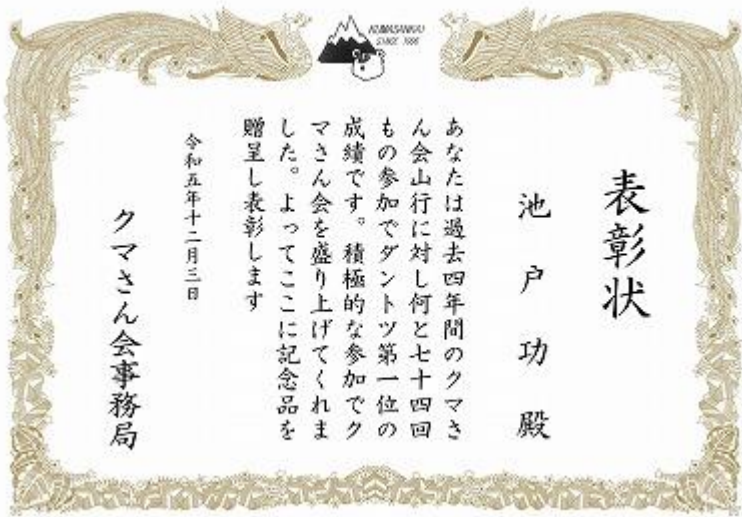 KUMASANKAI
SINCE 1996
表彰状
池戸功殿
あなたは過去四年間のクマさ
ん会山行に対し何と七十四回
もの参加でダントツ第一位の
成績です。積極的な参加でク
マさん会を盛り上げてくれま
した。よってここに記念品を
贈呈し表彰します
令和五年十二月三日
クマさん会事務局